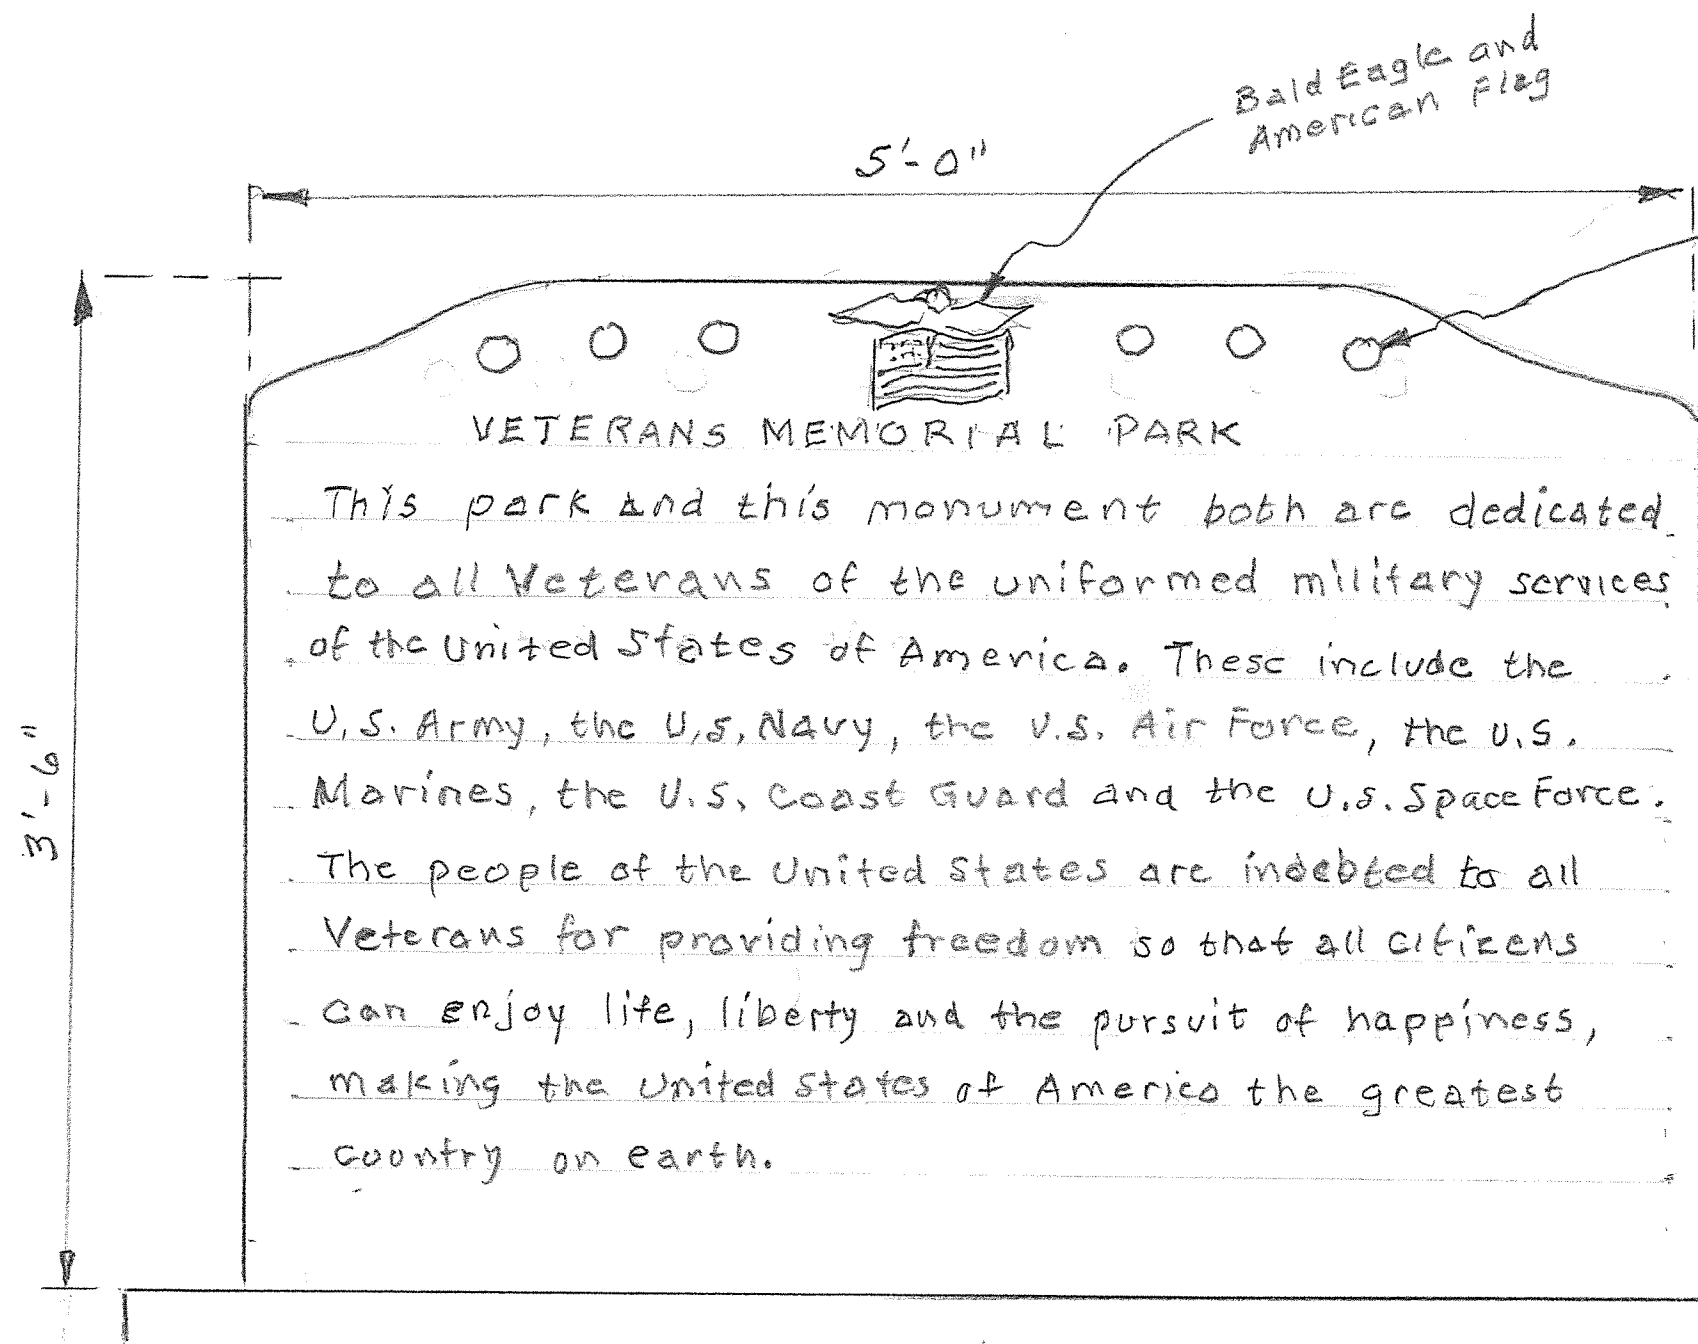 Bald Eagle and
American Flag
5'-0"
3'-6"
VETERANS MEMORIAL PARK
This park and this monument both are dedicated
to all Veterans of the uniformed military services
of the United States of America. These include the
U.S. Army, the U.S. Navy, the U.S. Air Force, the U.S.
Marines, the U.S. Coast Guard and the U.S. Space Force.
The people of the United States are indebted to all
Veterans for providing freedom so that all citizens
can enjoy life, liberty and the pursuit of happiness,
making the United States of America the greatest
country on earth.